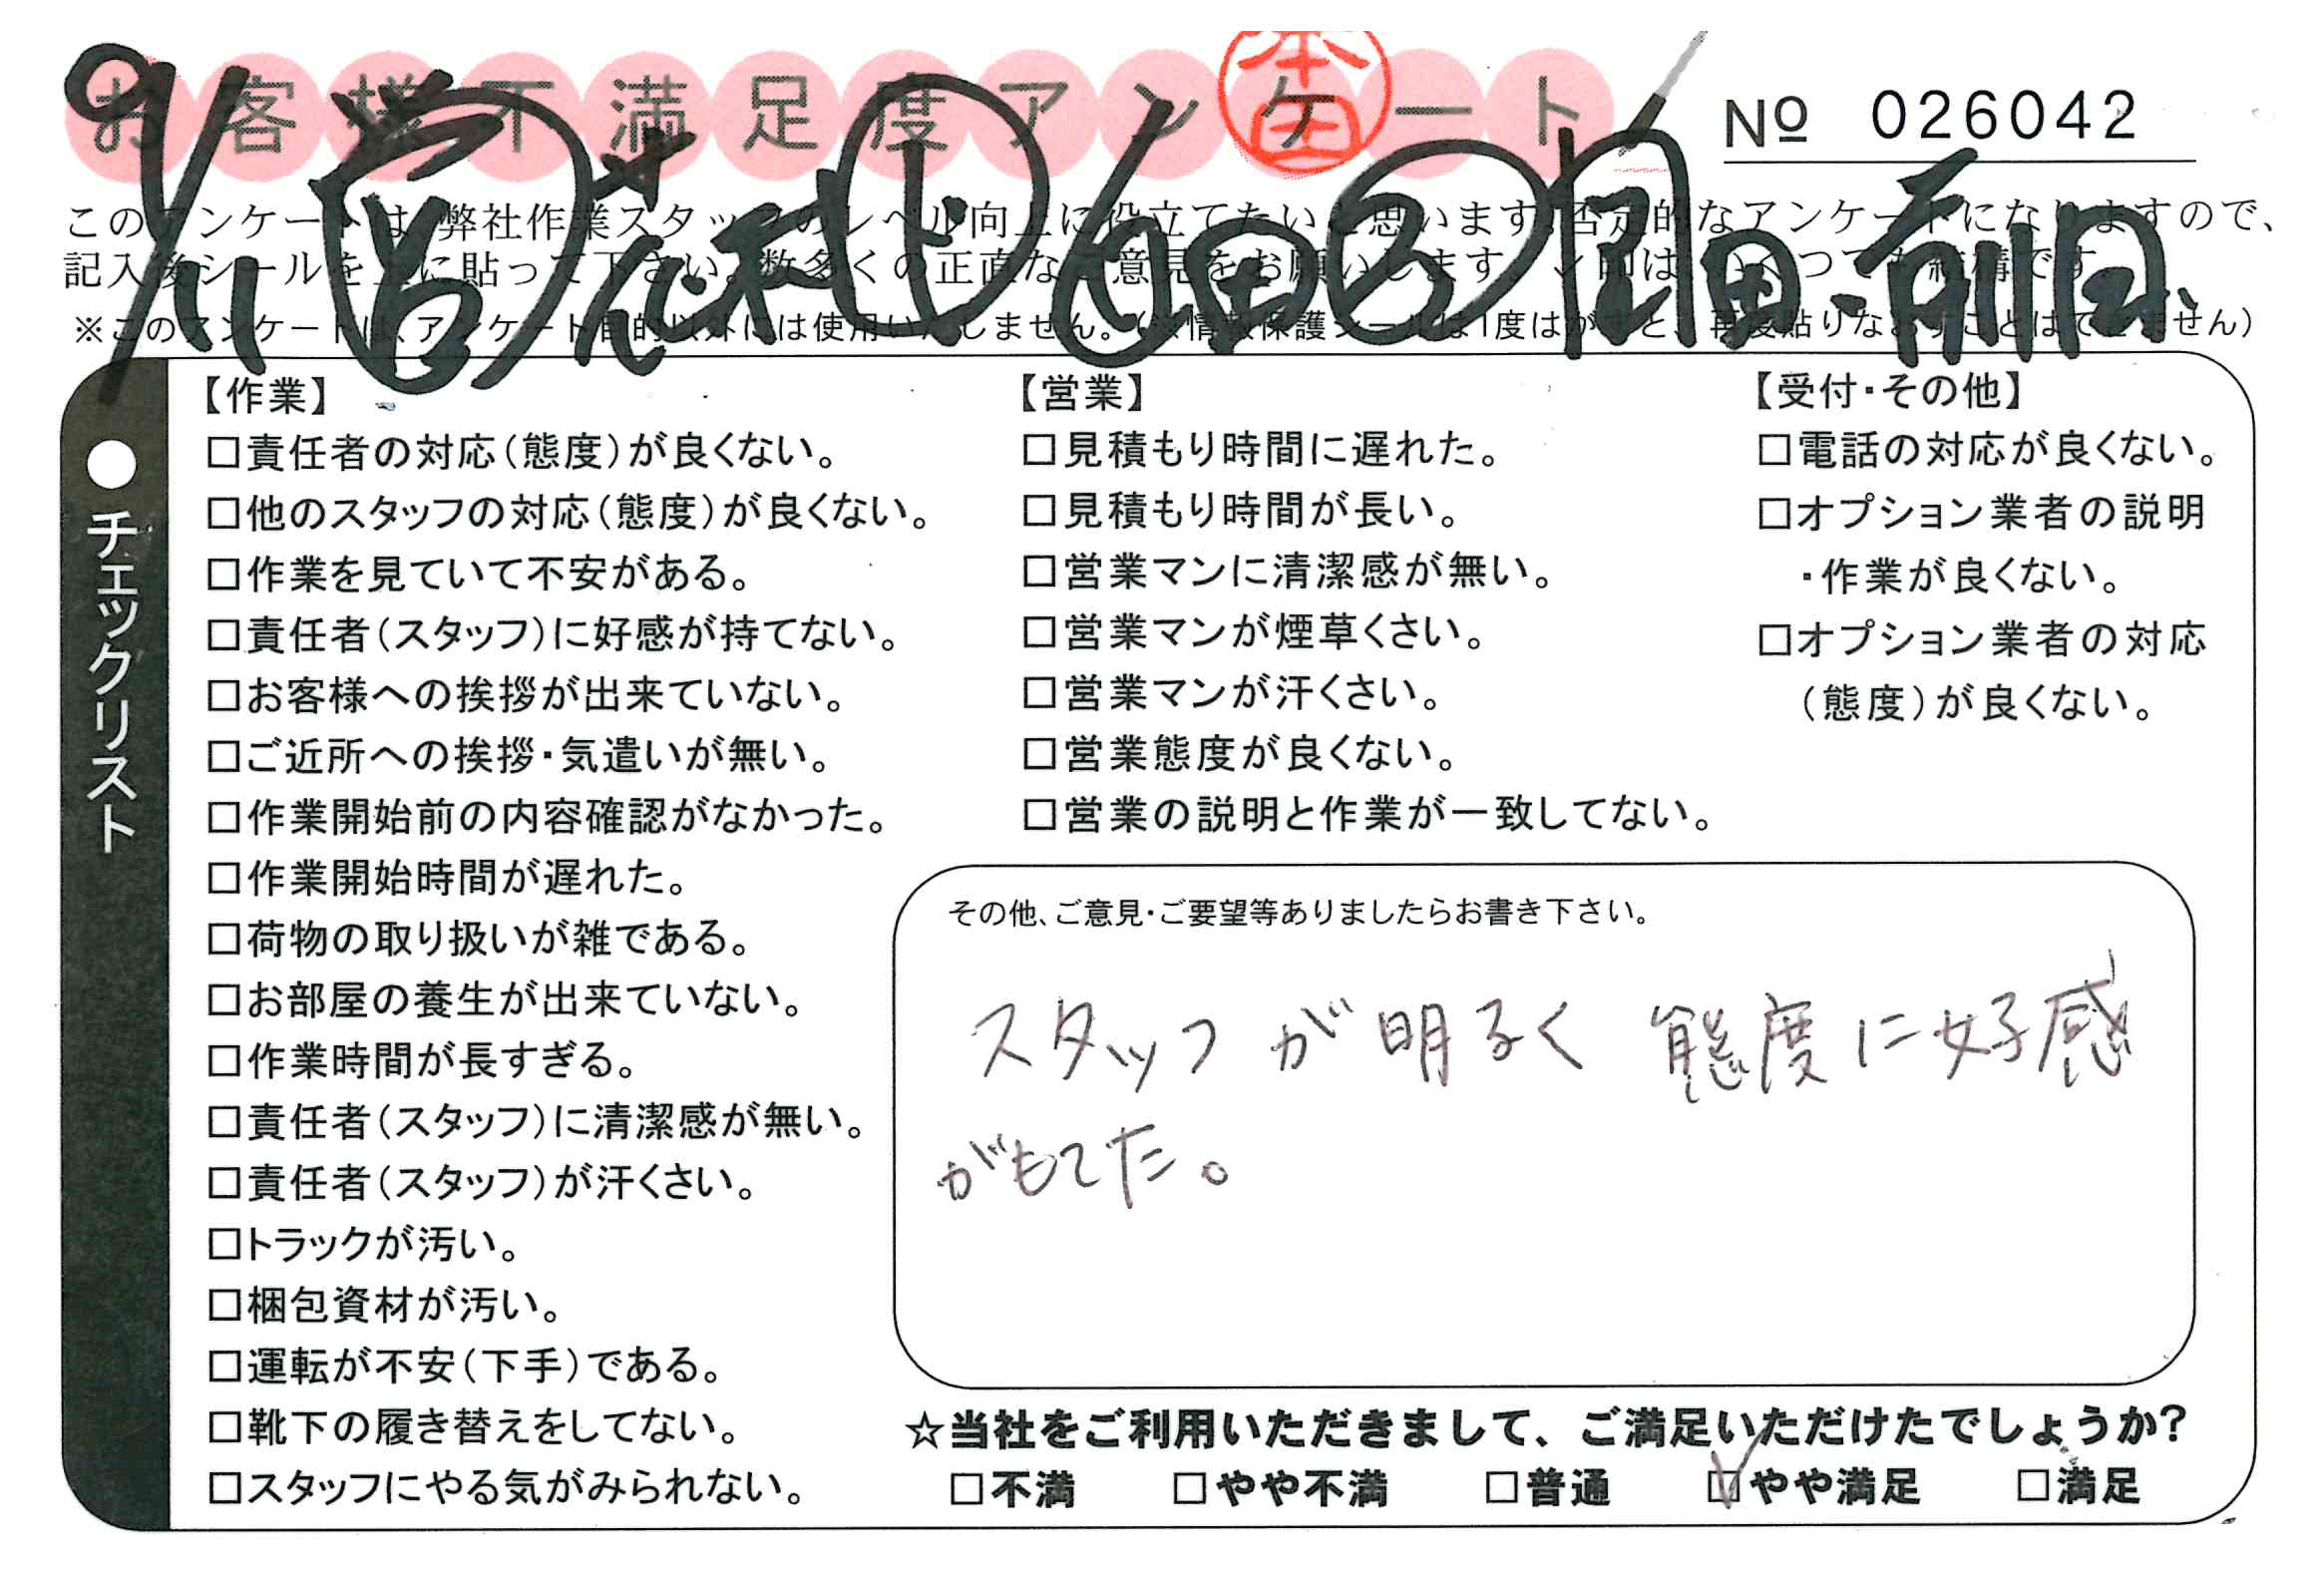 お客様不満足度アンケート
№ 026042
本田
このアンケートは、弊社作業スタッフのレベル向上に役立てたいと思います。否定的なアンケートになりますので、
記入後シールを上に貼って下さい。数多くの正直なご意見をお願いします。
※このアンケートは、アンケート目的以外には使用いたしません。(※情報保護シールは1度はがすと、再度貼りなおすことはできません)
●チェックリスト
【作業】
□責任者の対応(態度)が良くない。
□他のスタッフの対応(態度)が良くない。
□作業を見ていて不安がある。
□責任者(スタッフ)に好感が持てない。
□お客様への挨拶が出来ていない。
□ご近所への挨拶・気遣いが無い。
□作業開始前の内容確認がなかった。
□作業開始時間が遅れた。
□荷物の取り扱いが雑である。
□お部屋の養生が出来ていない。
□作業時間が長すぎる。
□責任者(スタッフ)に清潔感が無い。
□責任者(スタッフ)が汗くさい。
□トラックが汚い。
□梱包資材が汚い。
□運転が不安(下手)である。
□靴下の履き替えをしてない。
□スタッフにやる気がみられない。
【営業】
□見積もり時間に遅れた。
□見積もり時間が長い。
□営業マンに清潔感が無い。
□営業マンが煙草くさい。
□営業マンが汗くさい。
□営業態度が良くない。
□営業の説明と作業が一致してない。
【受付・その他】
□電話の対応が良くない。
□オプション業者の説明
・作業が良くない。
□オプション業者の対応
(態度)が良くない。
その他、ご意見・ご要望等ありましたらお書き下さい。
スタッフが明るく 態度に好感
がもてた。
☆当社をご利用いただきまして、ご満足いただけたでしょうか?
□不満 □やや不満 □普通 ☑やや満足 □満足